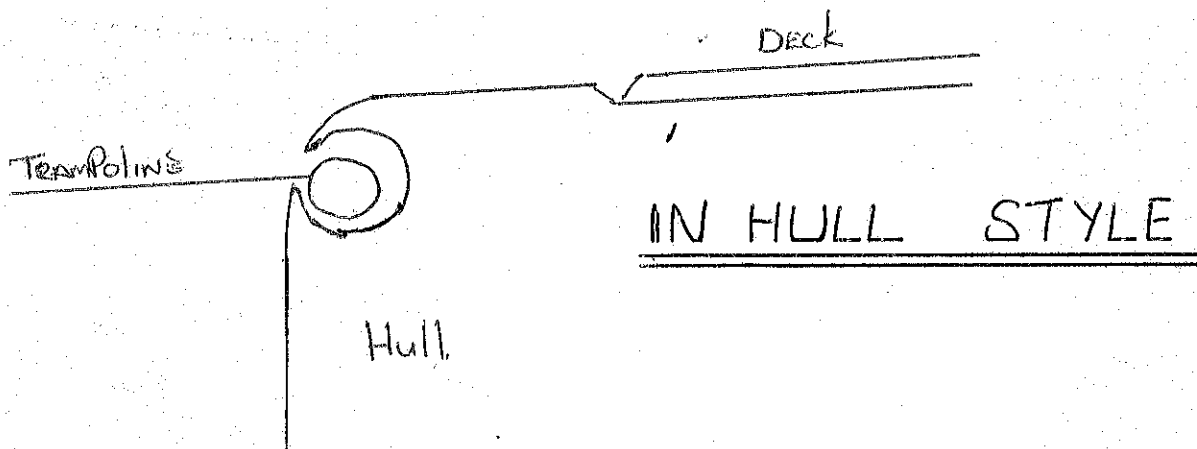 DECK
TRAMPOLINE
IN HULL STYLE
Hull.